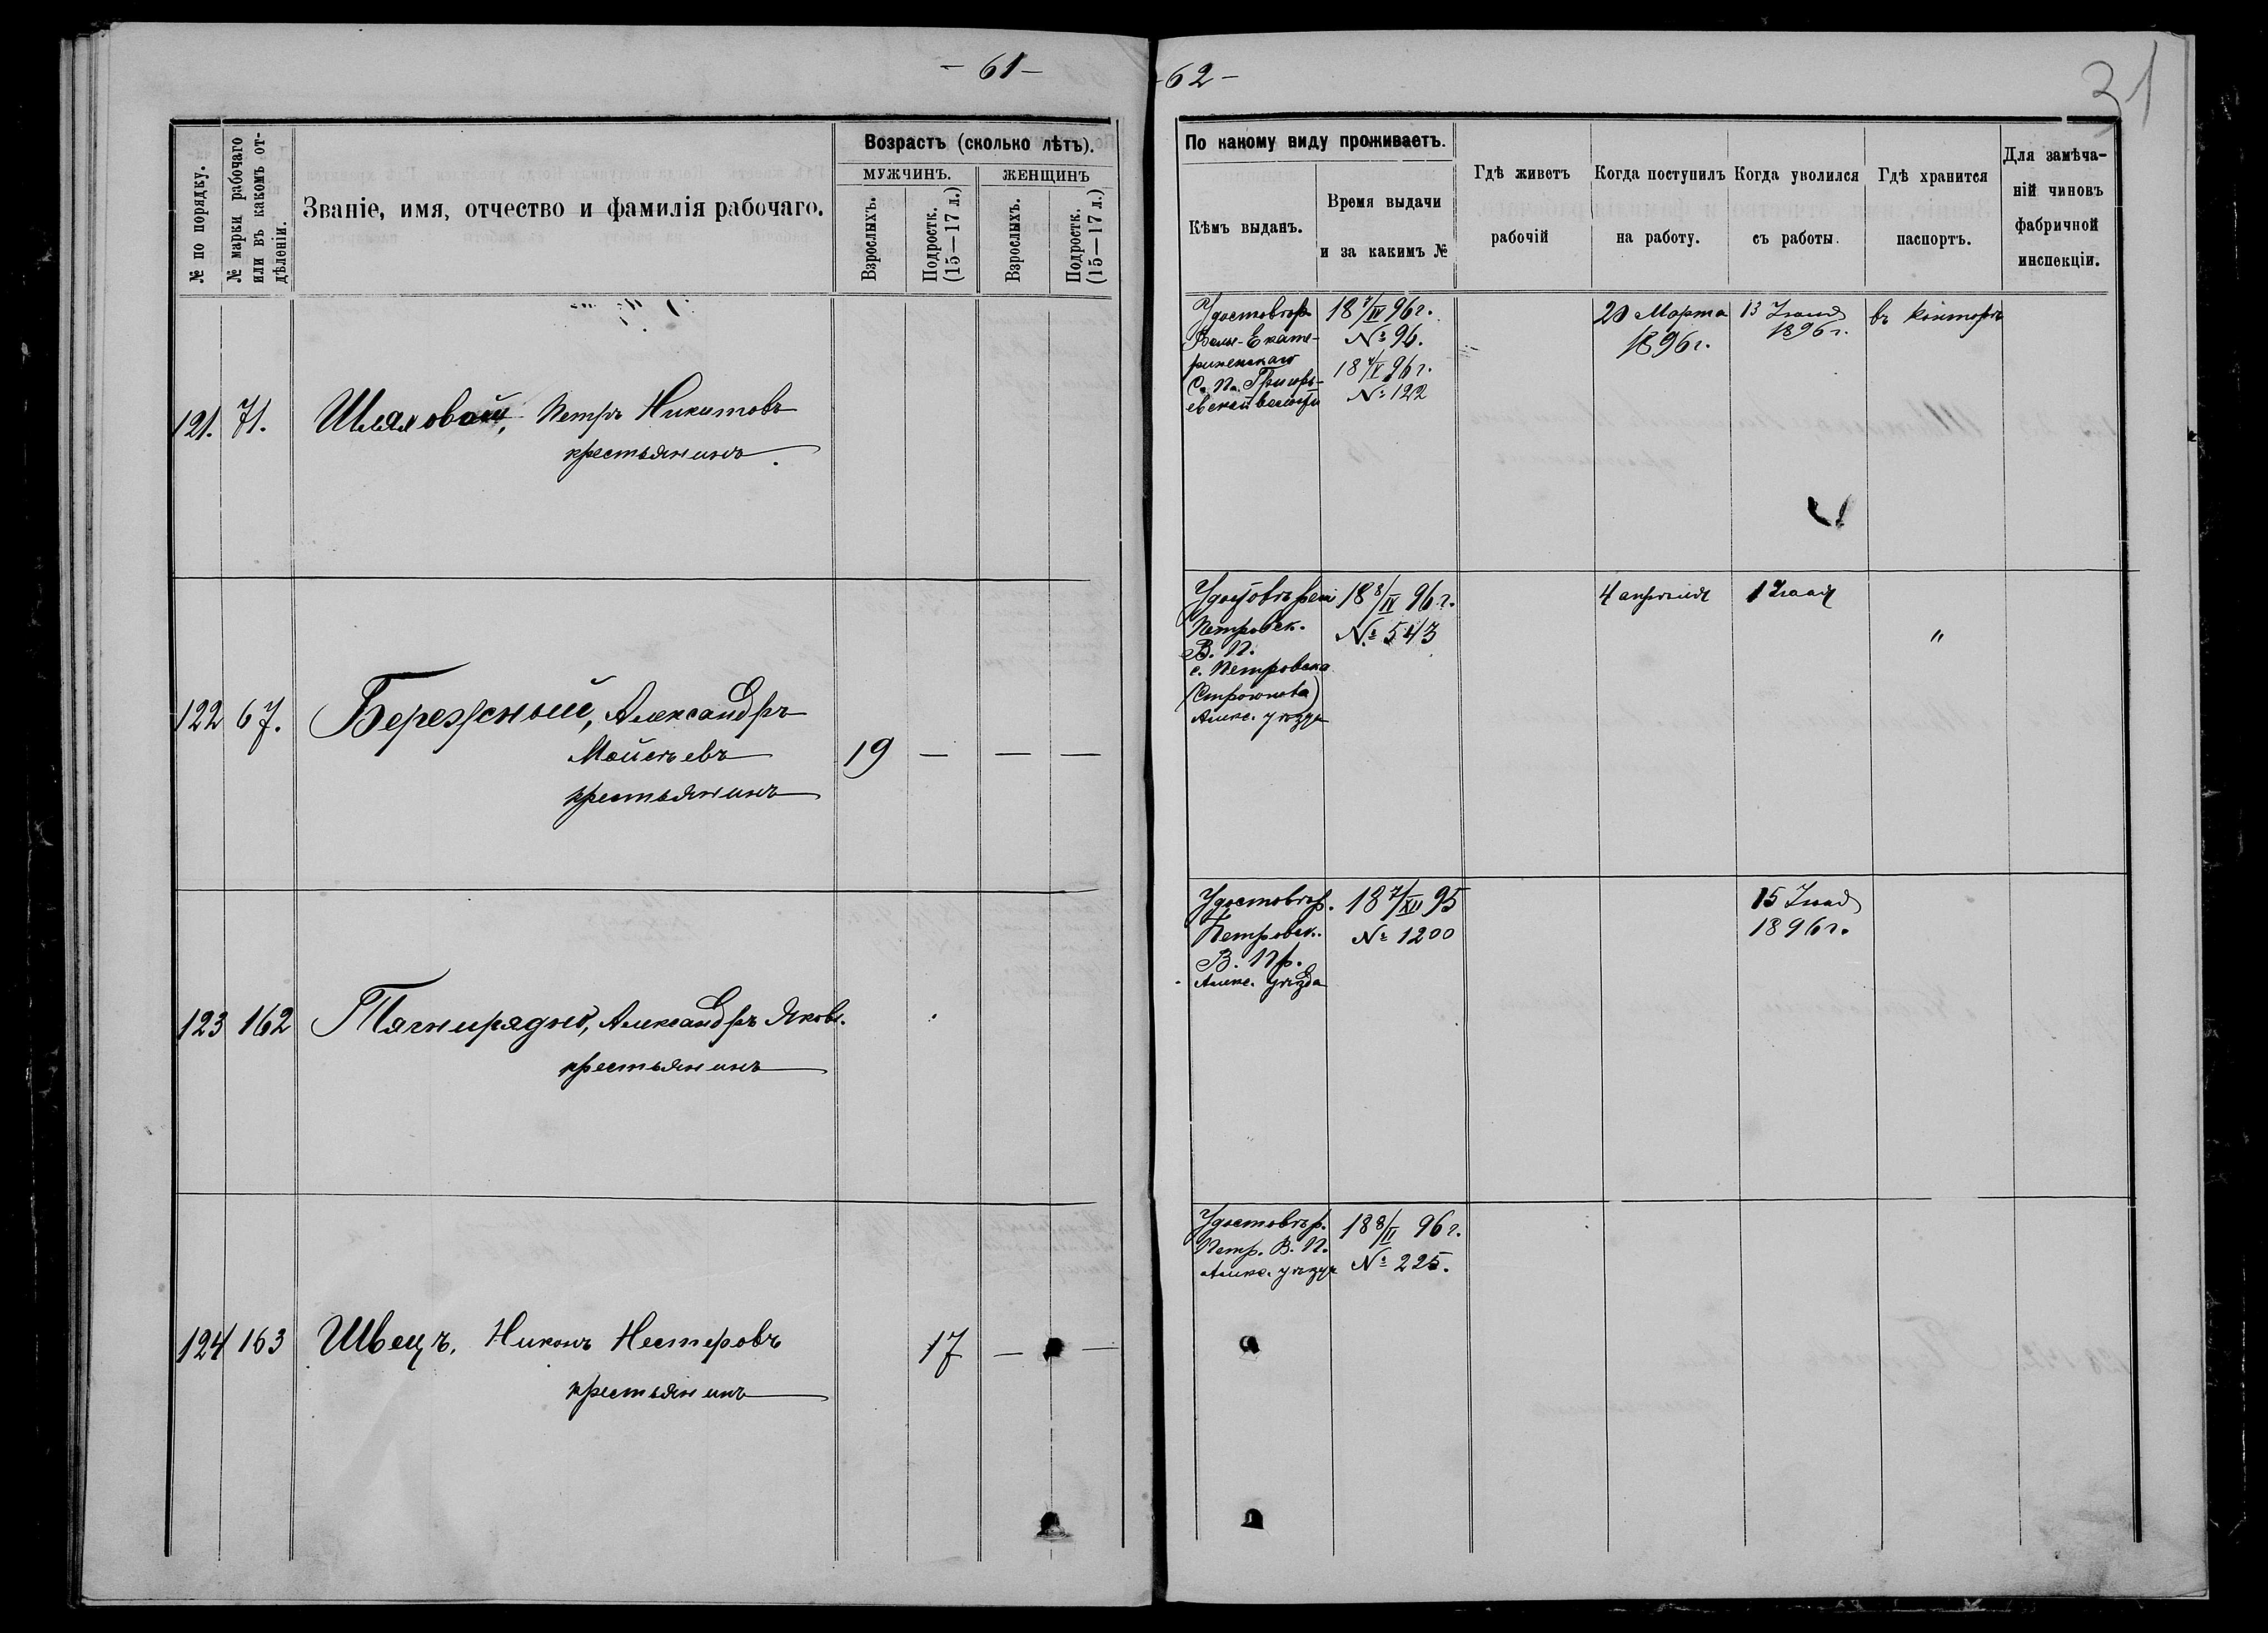 — 61 —
№ по порядку.
№ марки рабочаго
или въ какомъ от-
дѣленіи.
Званіе, имя, отчество и фамилія рабочаго.
Возрастъ (сколько лѣтъ).
МУЖЧИНЪ.
ЖЕНЩИНЪ
Взрослыхъ.
Подростк.
(15—17 л.)
Взрослыхъ.
Подростк.
(15—17 л.)
121. 71. Петръ Никитовъ
крестьянинъ.
122 67. Бережный, Александръ
Мойсѣевъ
19 — — —
крестьянинъ
123 162 Тягнирядно, Александръ Яковл.
крестьянинъ
124 163 Швецъ, Никонъ Нестеровъ 17 — —
крестьянинъ
- 62 -
31
По какому виду проживаетъ.
Кѣмъ выданъ.
Время выдачи
и за какимъ №
Гдѣ живетъ
рабочій
Когда поступилъ
на работу.
Когда уволился
съ работы.
Гдѣ хранится
паспортъ.
Для замѣча-
ній чиновъ
фабричной
инспекціи.
Удостовѣр.
Вель-Екате-
рининскаго
С. П. Григорь-
евской волости
18 7/IV 96 г.
№ 96.
18 4/V 96 г.
№ 122
20 Марта
1896 г.
13 Іюня
1896 г.
въ конторѣ
Удостовѣрені
Петровск.
В. П.
с. Петровска
Алекс. уѣзда
18 8/IV 96 г.
№ 543
4 апрѣля
1 Іюля
"
Удостовѣр.
Петровск.
В. Пр.
Алекс. уѣзда
18 7/XII 95
№ 1200
15 Іюля
1896 г.
Удостовѣр.
Петр. В. П.
Алекс. уѣзда
18 8/II 96 г.
№ 225.